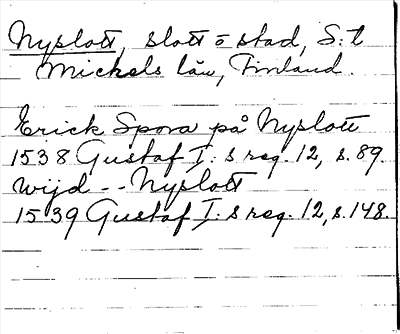 Nyslott, slott o stad, S:t
Mickels län, Finland.
Erick Spora på Nyslott
1538 Gustaf I:s reg. 12, s. 89.
Wijd -- Nyslott
1539 Gustaf I:s reg. 12, s. 148.